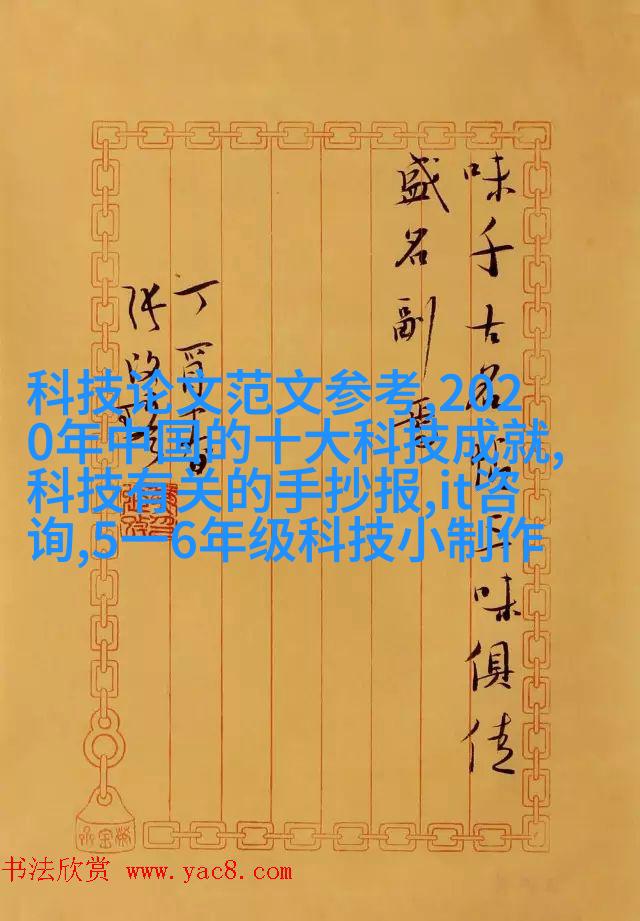 味千古名三味俱佳
盛名副焉
丁酉
张改琴
科技论文范文参考,202
0年中国的十大科技成就,
科技有关的手抄报,it咨
询,5一6年级科技小制作
书法欣赏 www.yac8.com